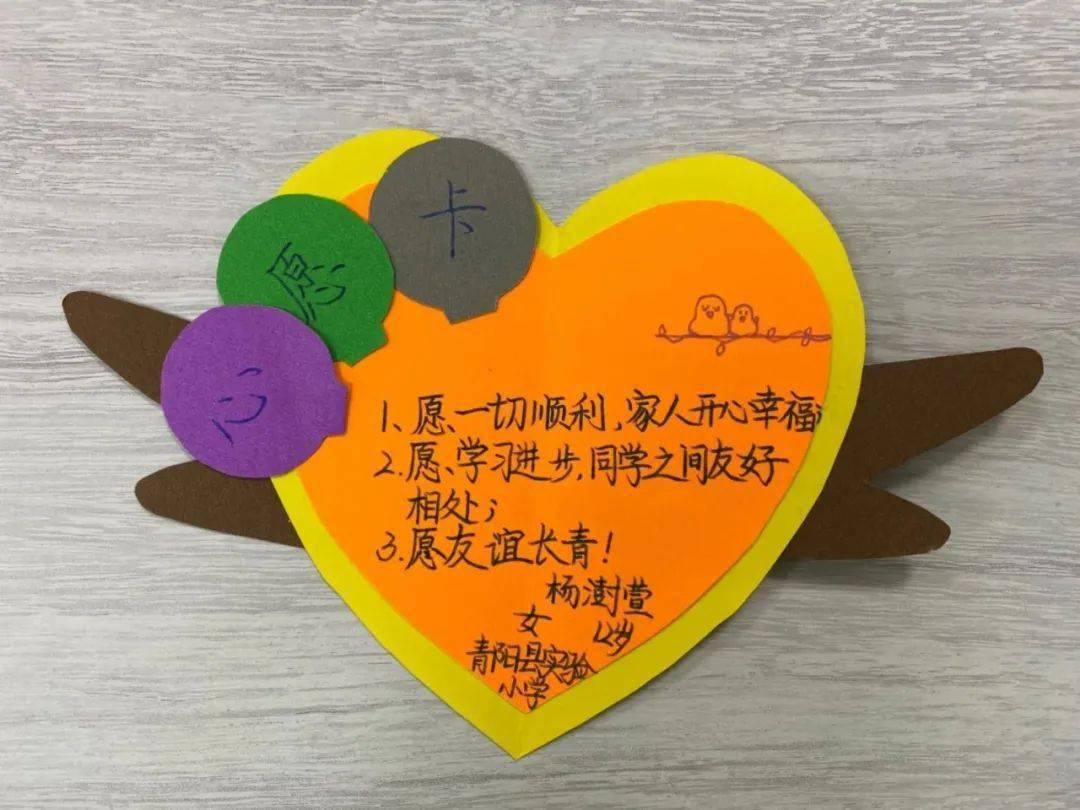 心愿卡
1、愿、一切顺利,家人开心幸福;
2.愿、学习进步,同学之间友好
相处;
3.愿友谊长青!
杨澍萱
女 12岁
青阳县实验
小学